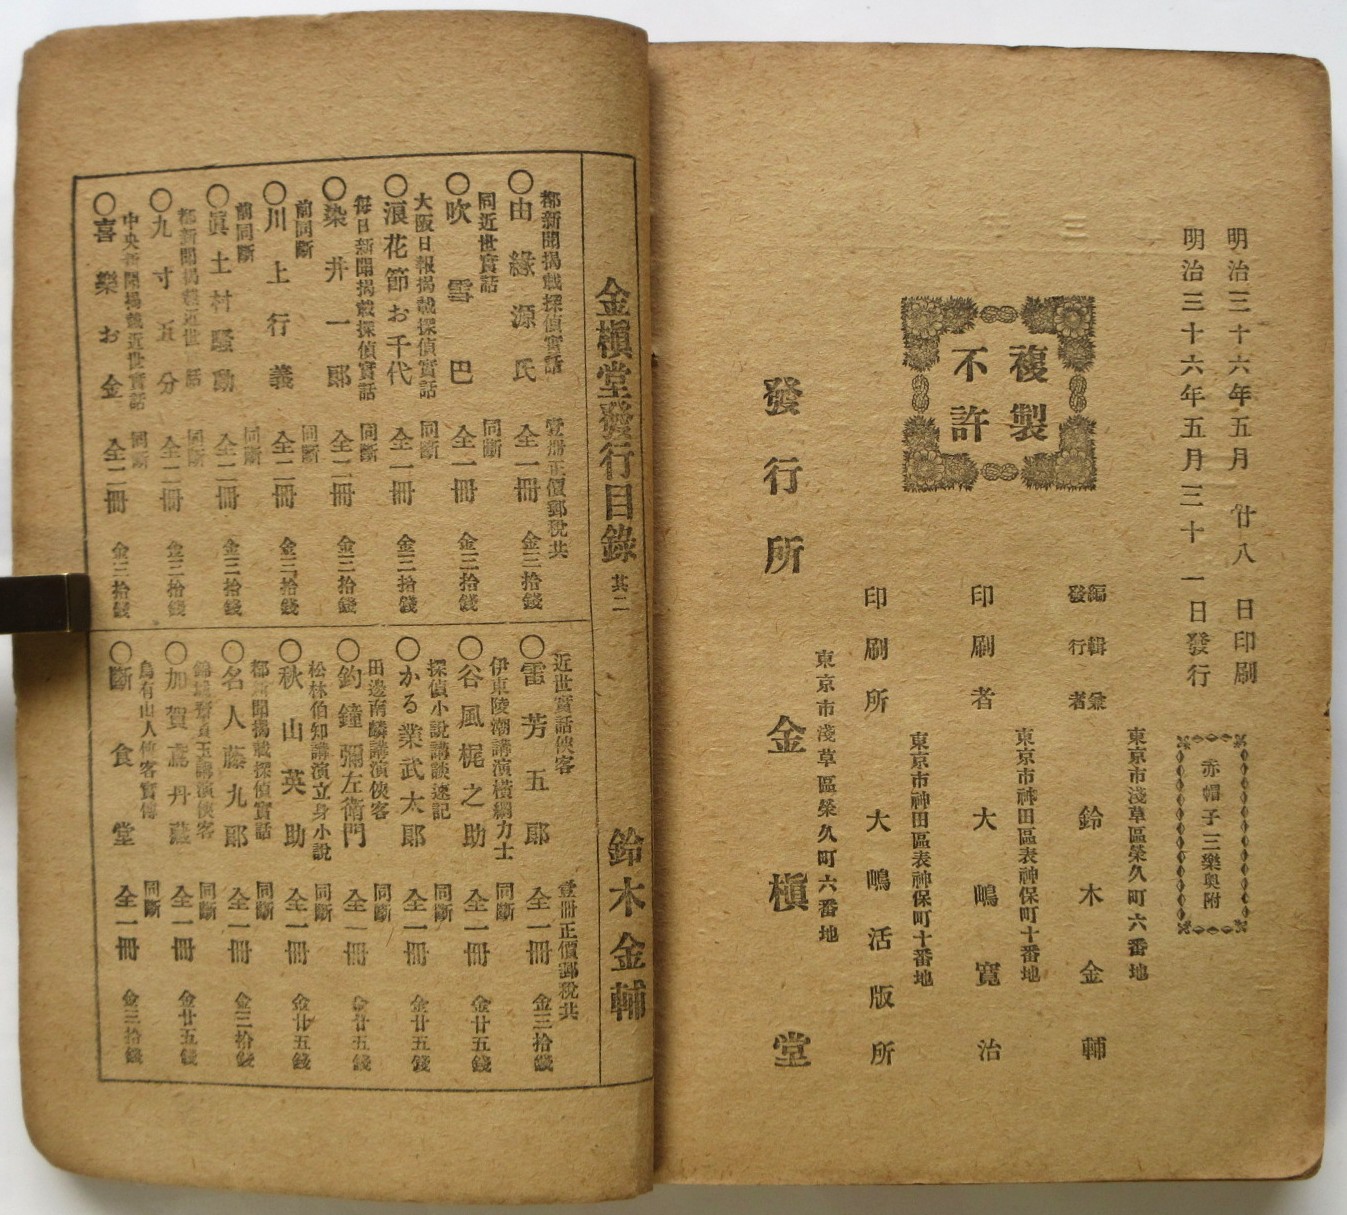 明治三十六年五月廿八日印刷
明治三十六年五月三十一日發行
赤帽子三樂奥附
複製
不許
東京市淺草區榮久町六番地
編輯兼
發行者
鈴木金輔
東京市神田區表神保町十番地
印刷者 大鳴寬治
東京市神田區表神保町十番地
印刷所 大鳴活版所
東京市淺草區榮久町六番地
發行所 金槇堂
金槇堂發行目錄 其二 鈴木金輔
都新聞揭載探偵實話 壹册正價郵稅共
○由緣源氏 全一冊 金三拾錢
同近世實話 同斷
○吹雪巴 全一冊 金三拾錢
大阪日報揭載探偵實話 同斷
○浪花節お千代 全一冊 金三拾錢
每日新聞揭載探偵實話 同斷
○染井一郎 全二冊 金三拾錢
前同斷 同斷
○川上行義 全二冊 金三拾錢
前同斷 同斷
○眞土村騷動 全二冊 金三拾錢
都新聞揭載近世話 同斷
○九寸五分 全二冊 金三拾錢
中央新聞揭載近世實話 同斷
○喜樂お金 全二冊 金三拾錢
近世實話俠客 壹冊正價郵稅共
○雷芳五郎 全一冊 金三拾錢
伊東陵潮講演橫綱力士 同斷
○谷風梶之助 全一冊 金廿五錢
探偵小說講談速記 同斷
○かる業武太郎 全一冊 金廿五錢
田邊南麟講演俠客 同斷
○釣鐘彌左衛門 全一冊 金廿五錢
松林伯知講演立身小說 同斷
○秋山英助 全一冊 金廿五錢
都新聞揭載探偵實話 同斷
○名人藤九郎 全一冊 金三拾錢
玉講演俠客 同斷
○加賀鳶丹藏 全一冊 金廿五錢
烏有山人俠客實傳 同斷
○斷食堂 全一冊 金三拾錢